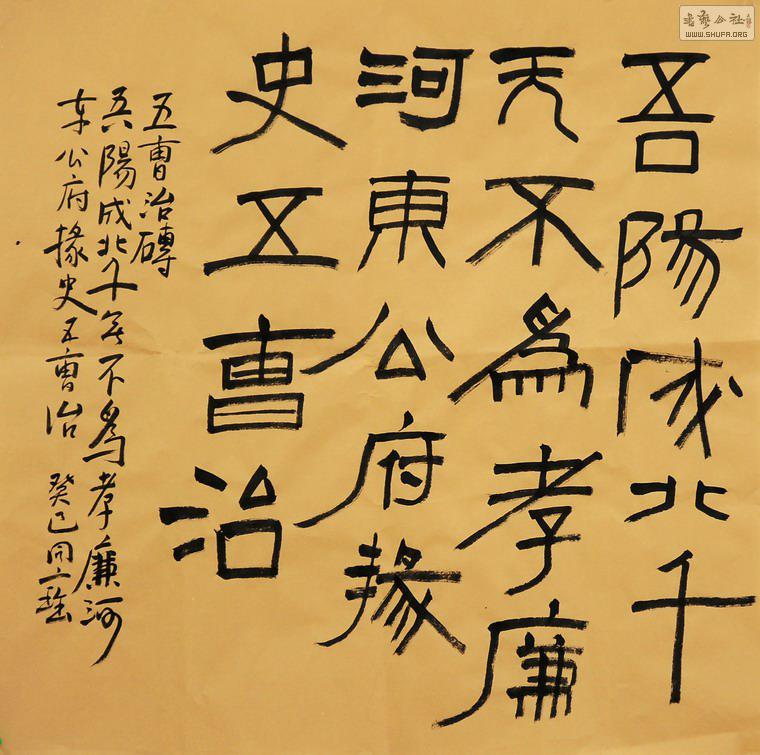 吾陽成北千
无不為孝廉
河東公府掾
史五曹治
五曹治磚
吾陽成北千无不為孝廉河
东公府掾史五曹治 癸巳同
书艺公社
WWW.SHUFA.ORG